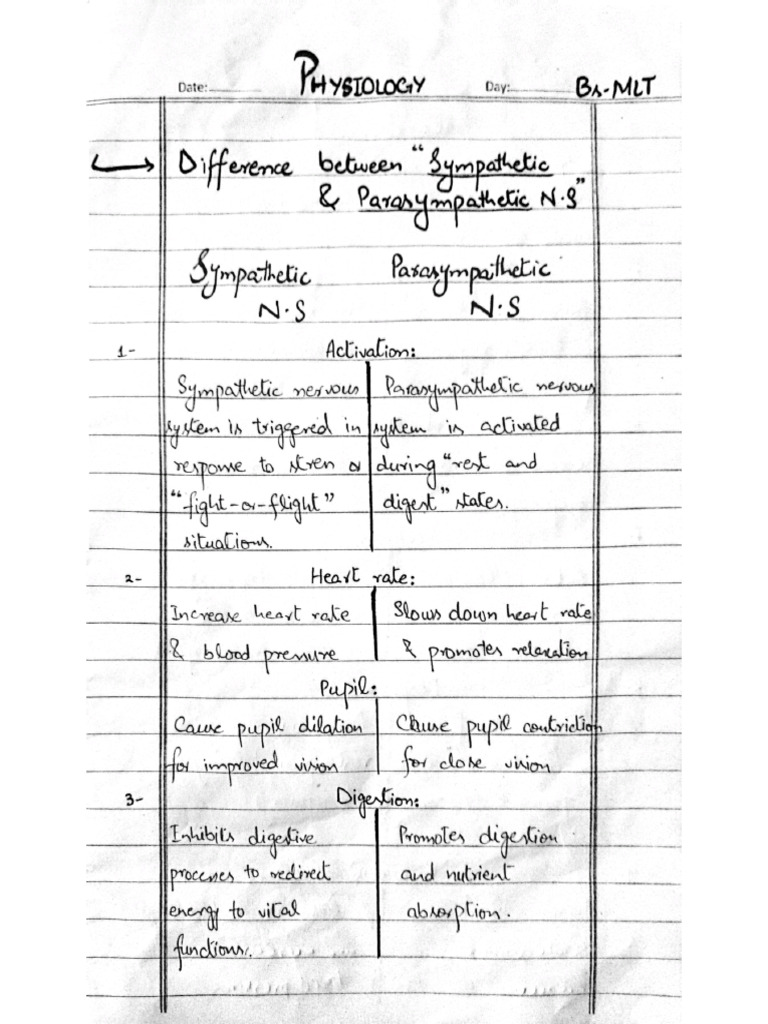 Date: PHYSIOLOGY Day: Bs-MLT
Difference between "Sympathetic
& Parasympathetic N.S"
Sympathetic Parasympathetic
N.S N.S
1- Activation:
Sympathetic nervous Parasympathetic nervous
system is triggered in system is activated
response to stress or during "rest and
"fight-or-flight" digest" states.
situations.
2- Heart rate:
Increase heart rate Slows down heart rate
& blood pressure & promotes relaxation
Pupil:
Cause pupil dilation Cause pupil contriction
for improved vision for close vision
3- Digestion:
Inhibits digestive Promotes digestion
processes to redirect and nutrient
energy to vital absorption.
functions.